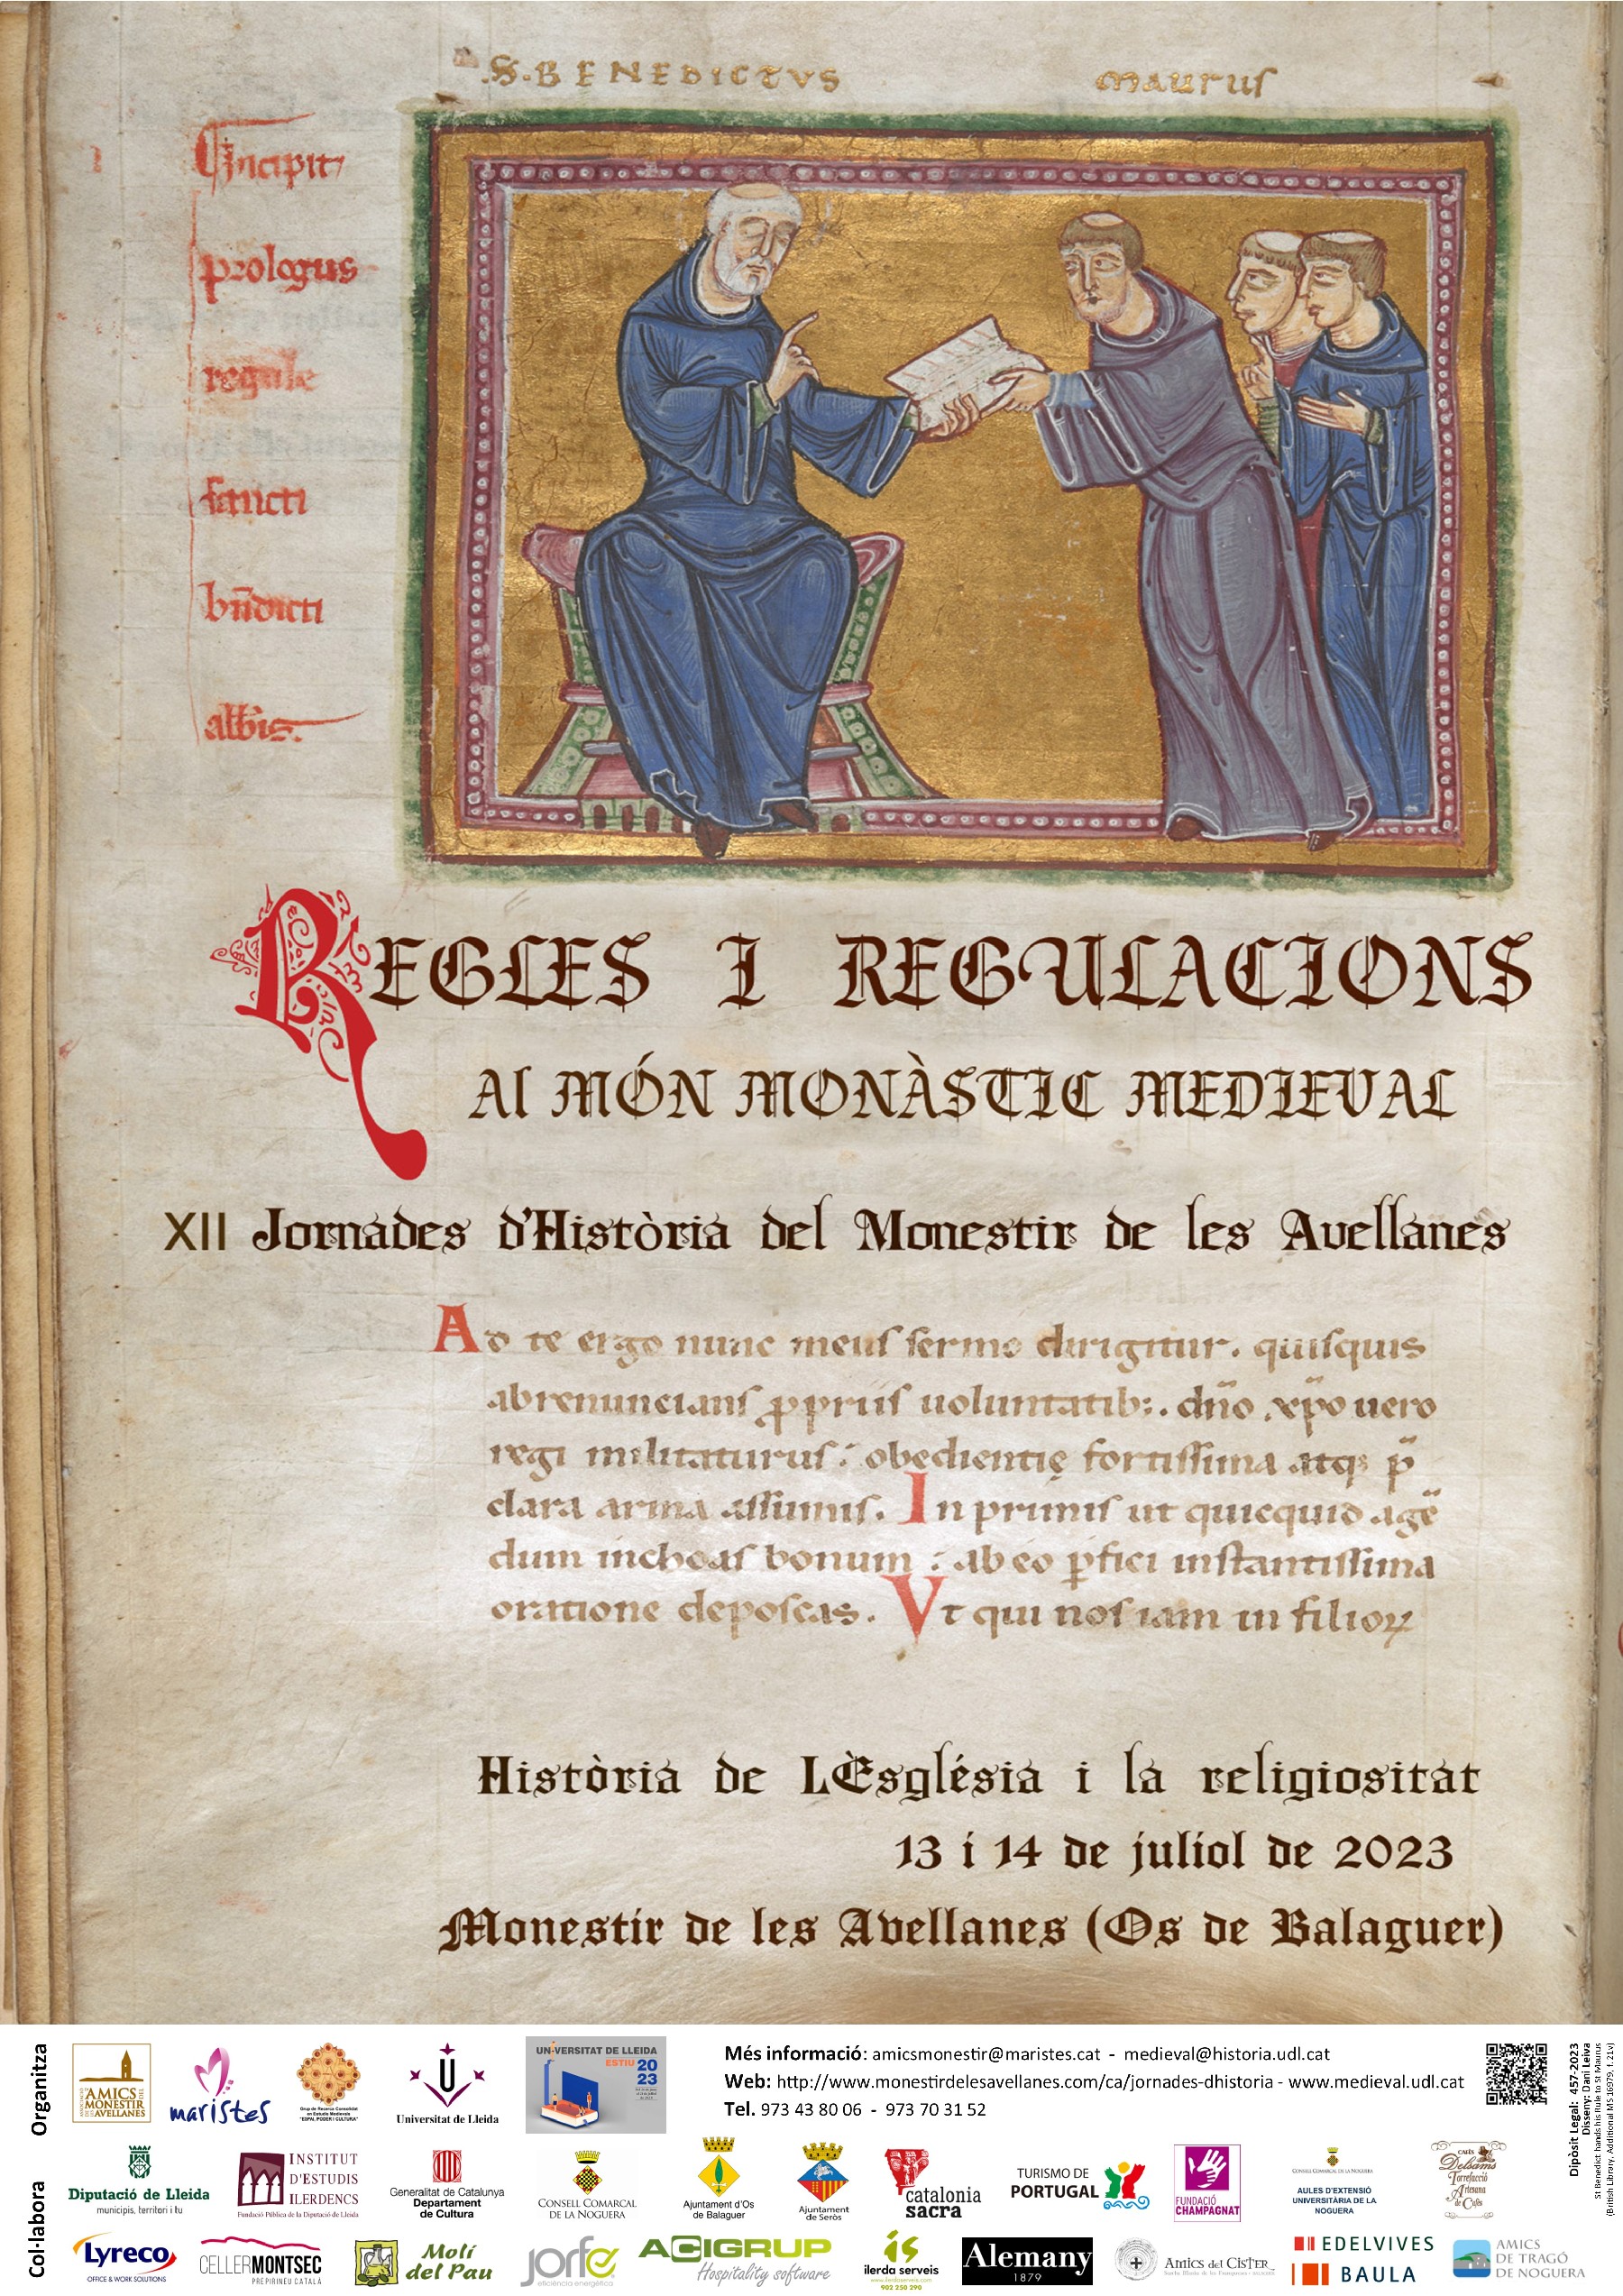 S. BENEDICTVS
maurus
Incipit
prologus
regule
sancti
bn̄dicti
REGLES I REGULACIONS
Al MÓN MONÀSTIC MEDIEVAL
XII Jornades d'Història del Monestir de les Avellanes
Ad te ergo nunc meus sermo dirigitur. quisquis
abrenuncians ꝓpriis uoluntatib;. dn̄o xp̄o uero
regi militaturus: obedientię fortissima atq; p̄
clara arma assumis. In primis ut quicquid agē
dum inchoas bonum: ab eo ꝑfici instantissima
oratione deposcas. Vt qui nos iam in filioꝝ
Història de L'Església i la religiositat
13 i 14 de juliol de 2023
Monestir de les Avellanes (Os de Balaguer)
Organitza
AMICS DEL
MONESTIR
AVELLANES
maristes
Grup de Recerca Consolidat
en Estudis Medievals
"ESPAI, PODER I CULTURA"
Universitat de Lleida
UNIVERSITAT DE LLEIDA
ESTIU 20
23
Més informació: amicsmonestir@maristes.cat - medieval@historia.udl.cat
Web: http://www.monestirdelesavellanes.com/ca/jornades-dhistoria - www.medieval.udl.cat
Tel. 973 43 80 06 - 973 70 31 52
Dipòsit Legal: 457-2023
Disseny: Dani Leiva
St Benedict hands his Rule to St Maurus
(British Library, Additional MS 16979, f.21v)
Col·labora
Diputació de Lleida
municipis, territori i tu
INSTITUT
D'ESTUDIS
ILERDENCS
Fundació Pública de la Diputació de Lleida
Generalitat de Catalunya
Departament
de Cultura
CONSELL COMARCAL
DE LA NOGUERA
Ajuntament d'Os
de Balaguer
Ajuntament
de Seròs
catalonia
sacra
TURISMO DE
PORTUGAL
FUNDACIÓ
CHAMPAGNAT
CONSELL COMARCAL DE LA NOGUERA
AULES D'EXTENSIÓ
UNIVERSITÀRIA DE LA
NOGUERA
CAFÈS
Delsams
Torrefacció
Artesana
de Cafès
Lyreco
OFFICE & WORK SOLUTIONS
CELLERMONTSEC
PREPIRINEU CATALÀ
Molí
del Pau
jorfe
eficiència energètica
ACIGRUP
Hospitality software
is
ilerda serveis
www.ilerdaserveis.com
902 250 290
Alemany
1879
Amics del Císter
EDELVIVES
BAULA
AMICS
DE TRAGÓ
DE NOGUERA